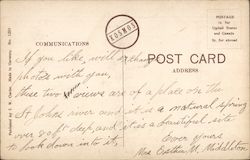 COMMUNICATIONS
POSTAGE
1c. for
United States
and Canada
2c. for abroad
KOSMOS
POST CARD
ADDRESS
If you like, will exchange
photos with you,
these two views are of a place on the
St Johns river and it is a natural spring
over 80 ft deep, and it is a beautiful site
to look down into it.
Ever yours
Mrs Esther M. Middleton